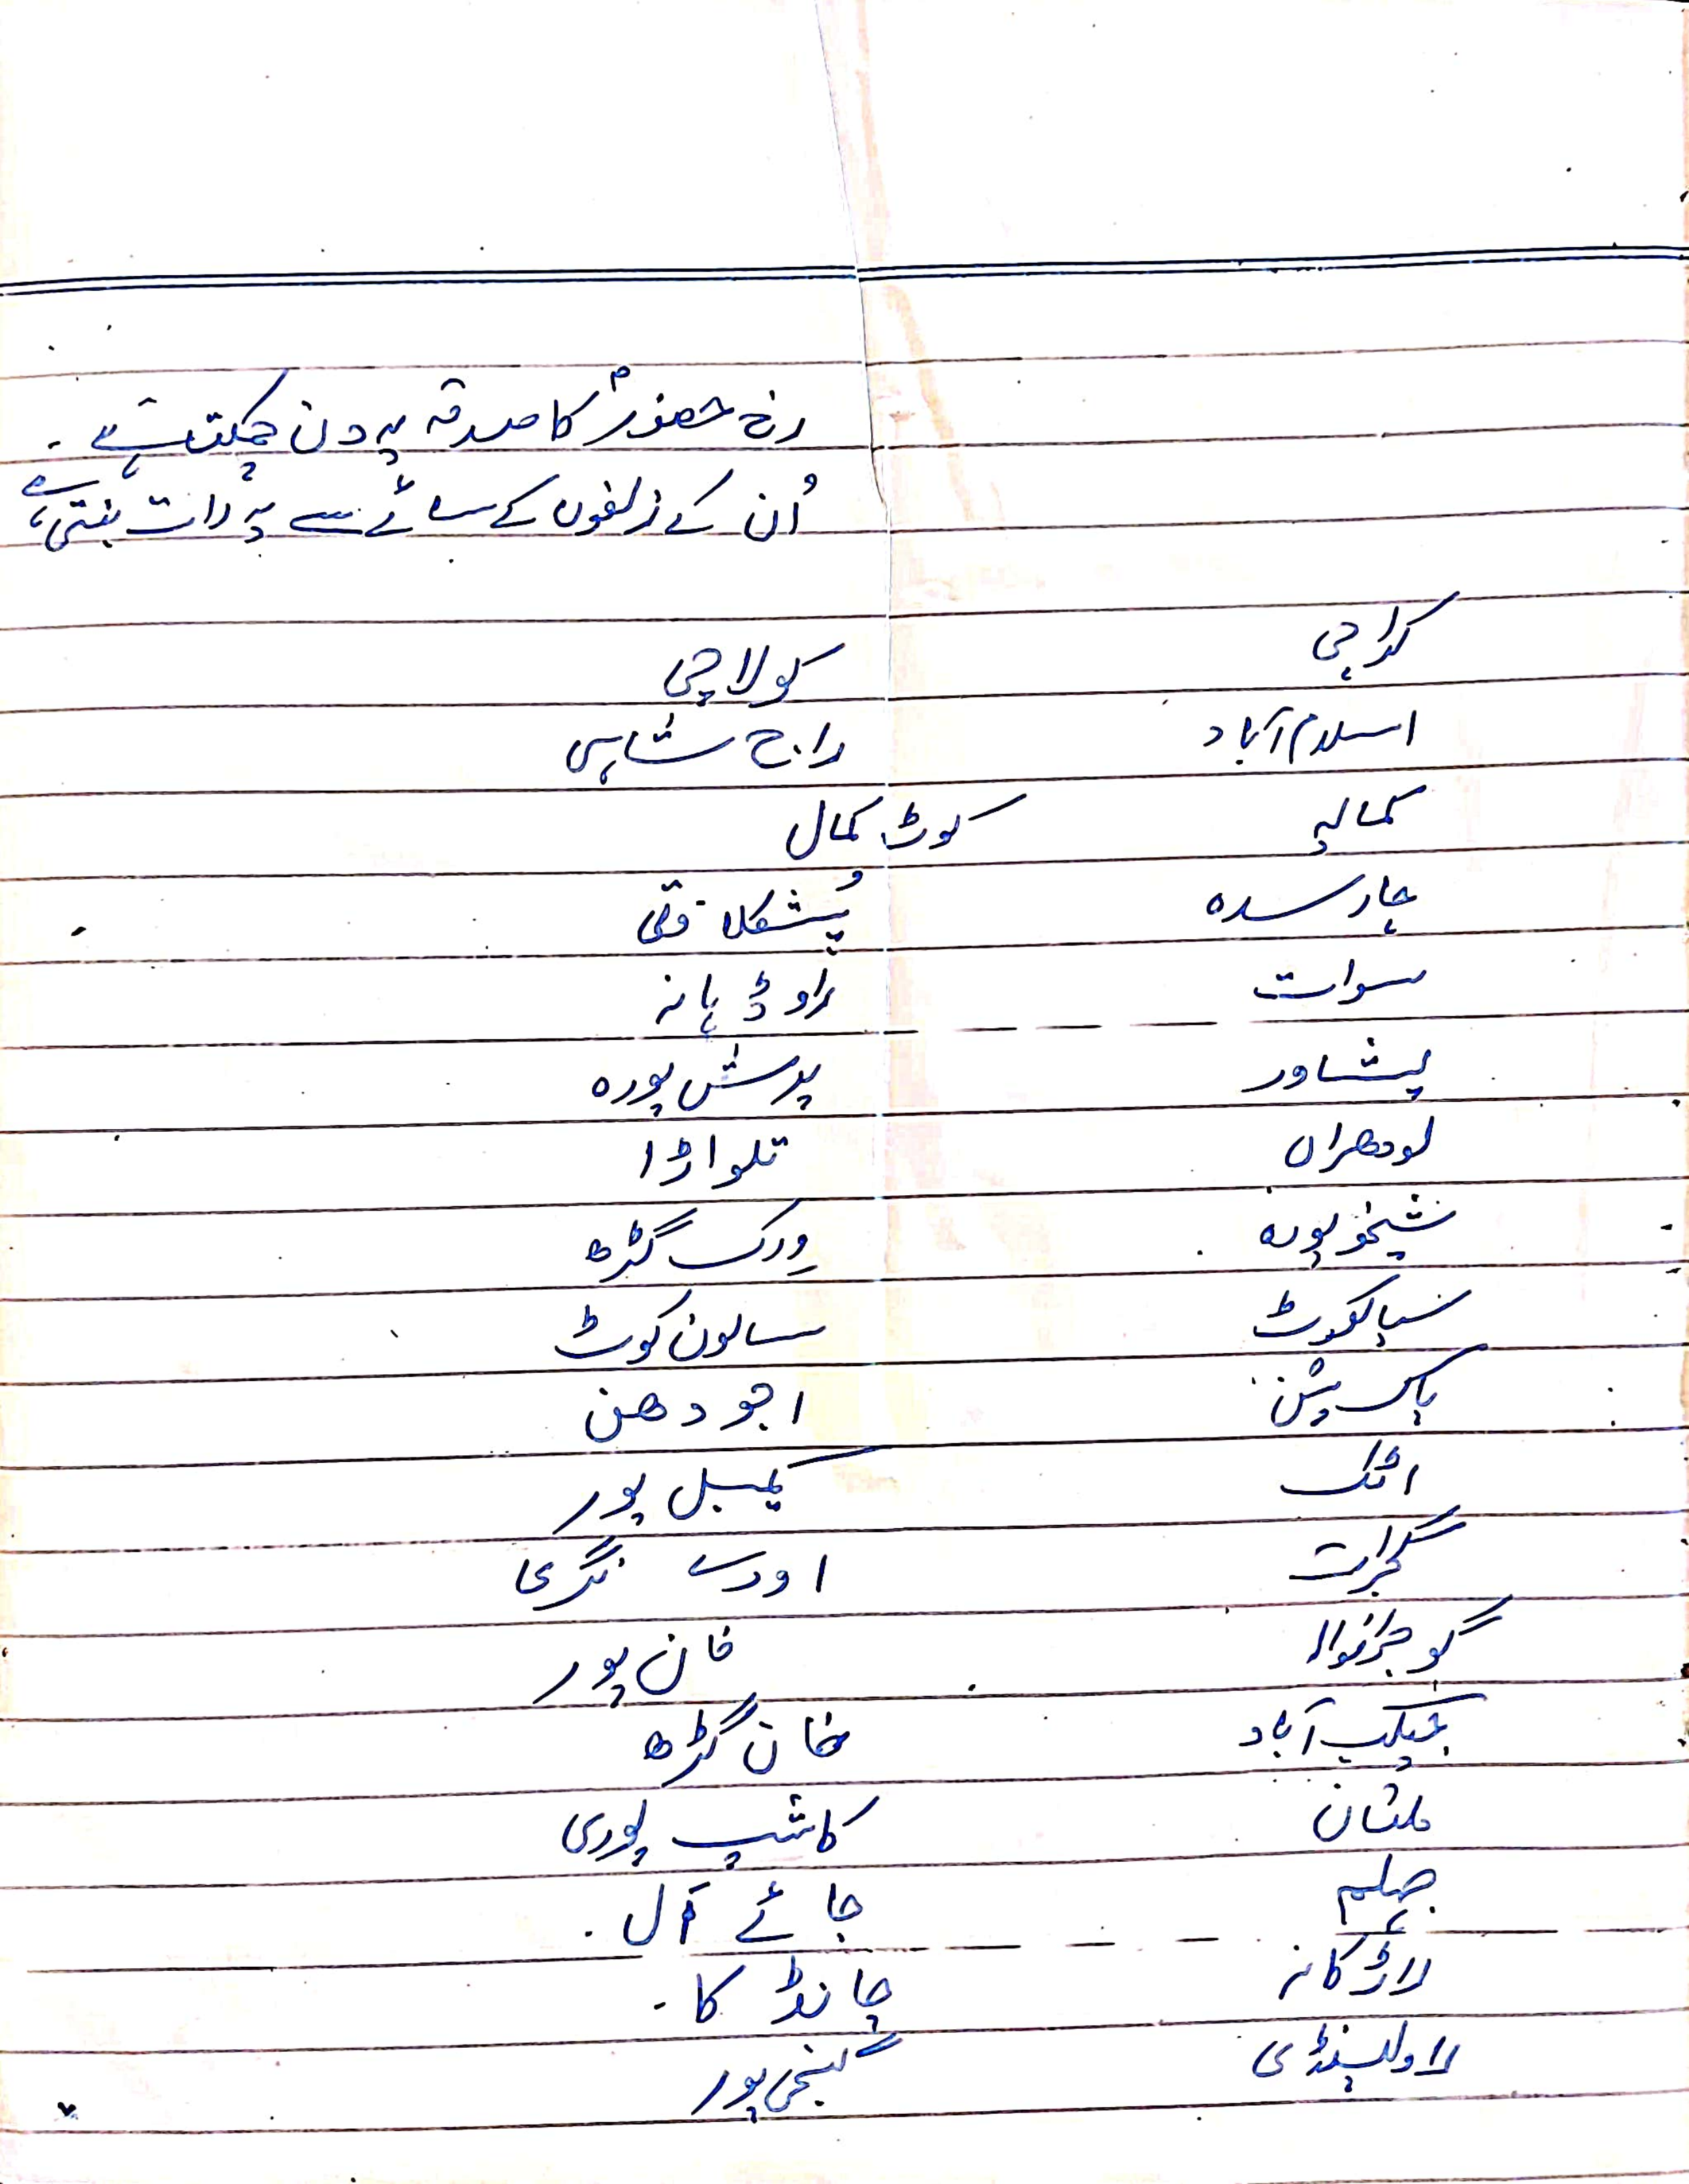 رخ حضورؐ کا صدقہ یہ دن چمکتا ہے ۔
اُن کے زلفوں کے سائے سے یہ رات بنتی ہے
کراچی کولاچی
اسلام آباد راج شاہی
کمالیہ کوٹ کمال
چارسدہ پُشکلاوتی
سوات اوڈیانہ
پشاور پرش پورہ
لودھراں تلواڑا
شیخوپورہ وِرک گڑھ
سیالکوٹ سالون کوٹ
پاک پتن اجودھن
اٹک کیمبل پور
گجرات اودے نگری
گوجرانوالہ خان پور
جیکب آباد خان گڑھ
ملتان کاشپ پوری
جہلم جائے آل .
لاڑکانہ چانڈکا .
راولپنڈی گنجی پور